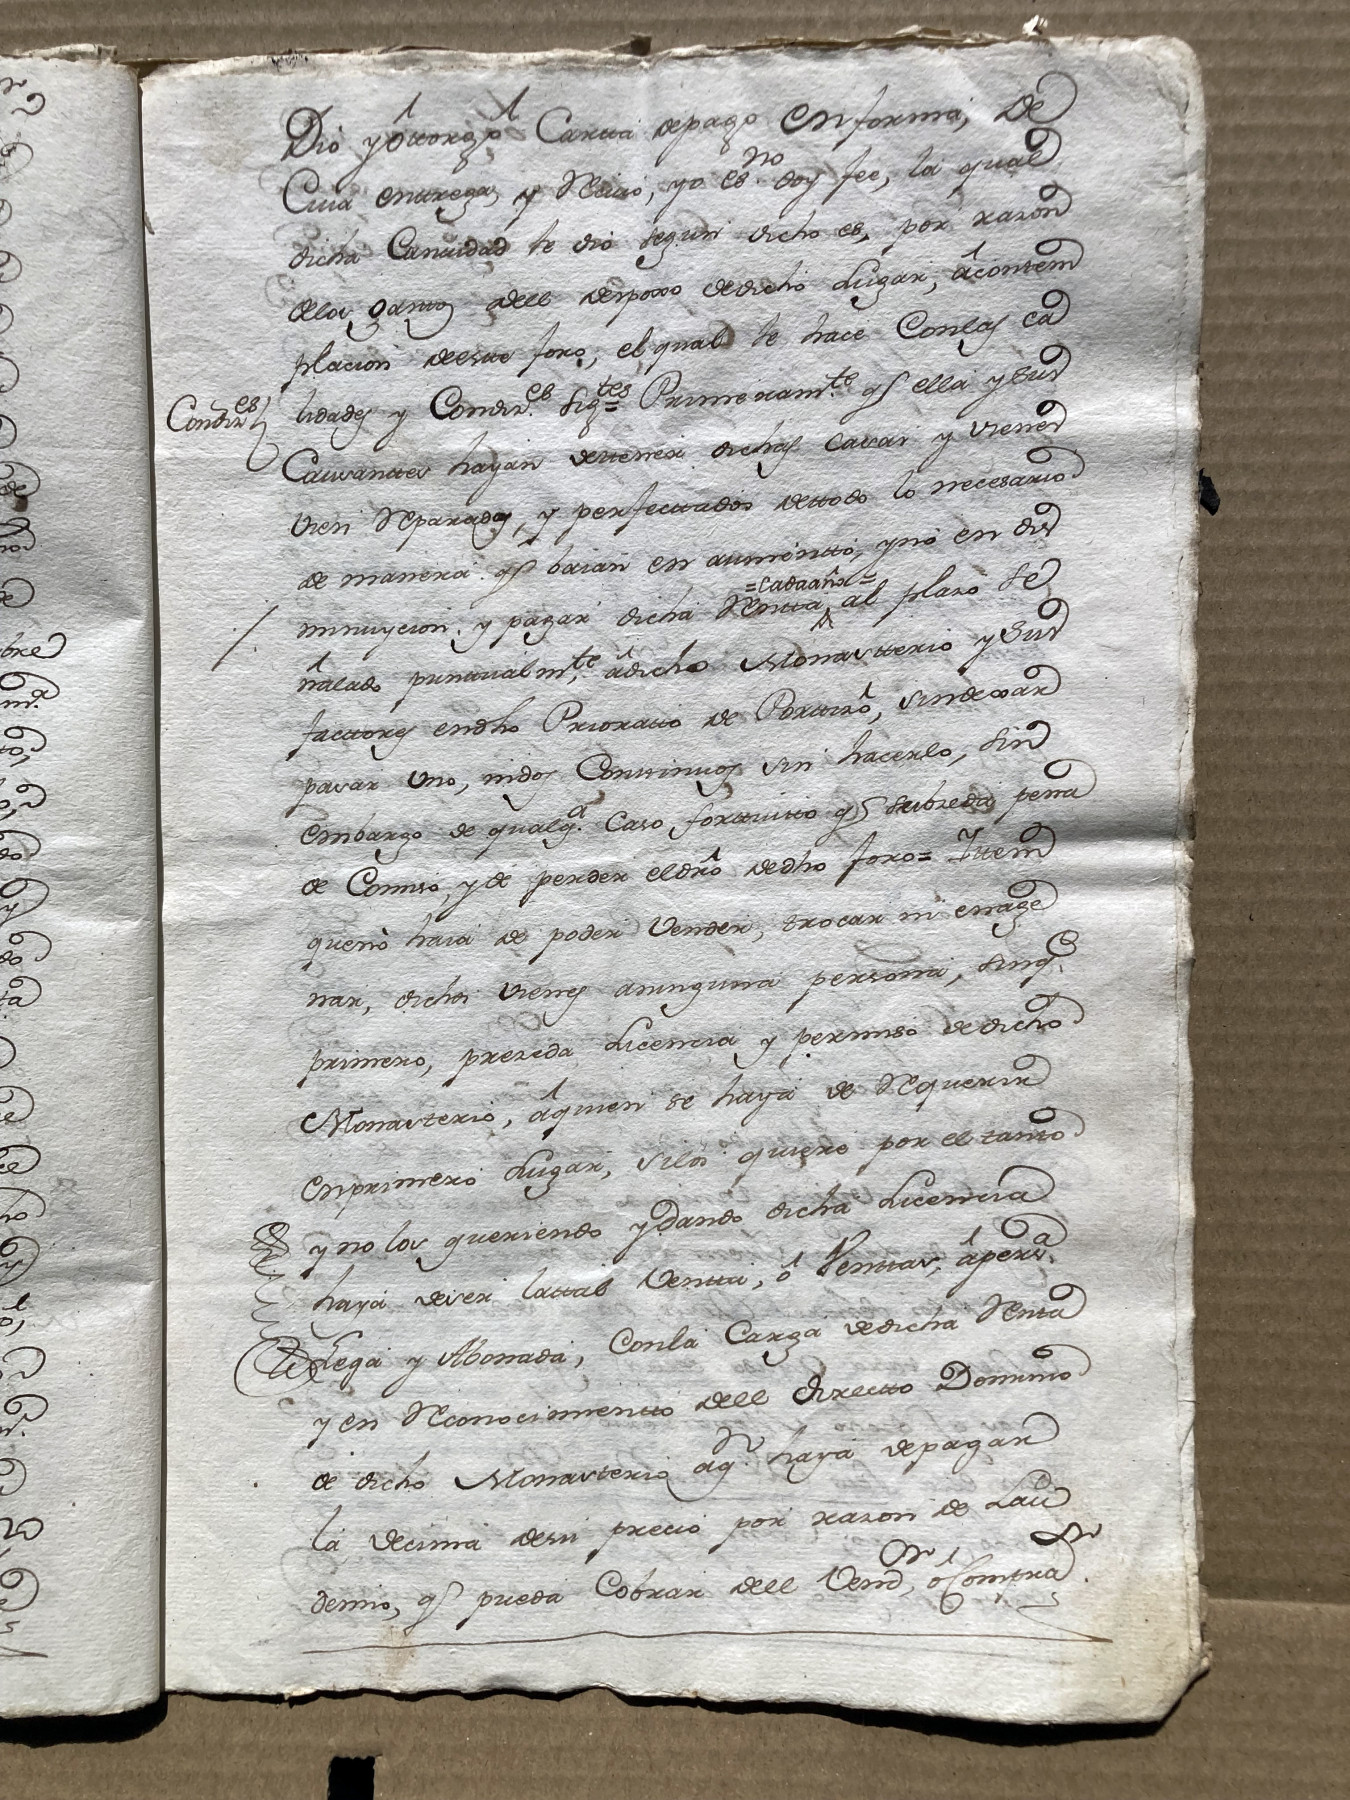 Dió y ôttorgó Cartta depago En forma, De
Cuia enttrega, y Reciuo, yo es.no doy fee, la qual
dicha Canttidad le dio segun dicho es, por razon
delos gastos dell despoxo dedicho Lugar, âcontem
placion deeste foro, el qual se hace Conlas ca
Condiz.es
lidades y Condiz.es sig.tes = Primeram.te q.e ella y sus
Causanttes hayan dettener dichas casas y vienes
vien Reparados, y perfecttados dettodo lo necesario
de manera q.e baian en aumentto, y no en dis
minuycion. y pagar dicha Rentta, =cadaaño= al plaso se
ñalado punttualm.te, âdicho Monastterio y sus
facttores endho Prioratto de Porttoró, sindexar
pasar uno, nidos Conttinuos sin hacerlo, sin
embargo de qualq.a Caso forttuitto q.e subceda pena
de Comiso, y de perder eldró dedho foro = Ittem
quenó haia de poder Vender, trocar ni enage
nar, dichos vienes aninguna persona, sinq.e
primero, preceda Licencia y permiso dedicho
Monasterio, âquien se haya de Requerir
enprimero Lugar, silos quiere por el tanto
y no los queriendo ydando dicha Licencia
haya deser lattal Ventta, ó Venttas, âpers.a
Lega y Abonada, Conla Carga dedicha Renta
y en Reconocimientto dell directto Dominio
de dicho Monasterio aq.n haya depagar
la decima desu precio por razon de Lau
demio, q.e pueda Cobrar dell Vend.r, ó Comprad.r